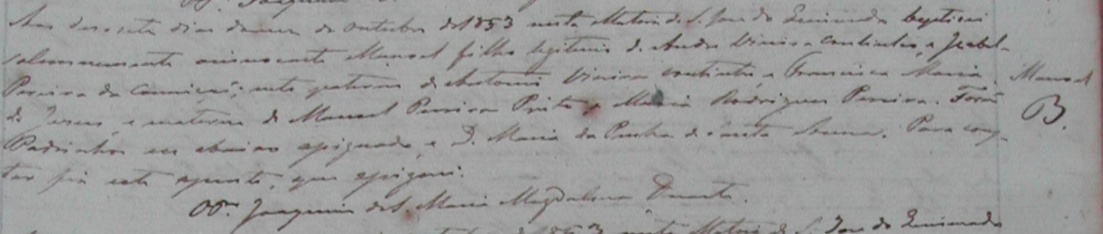 Aos dezoito dias do mez de outubro de 1853 nesta Matriz de S. Jose do Queimado baptizei
solennemente o innocente Manoel filho legitimo de Andre Vieira Continho, e Izabel
Pereira da Conceicaõ; neto paterno de Antonio Vieira Continho e Francisca Maria
de Jesus, e materno de Manoel Pereira Pinto e Maria Rodrigues Pereira. Foraõ
Padrinhos eu abaixo assignado, e D. Maria da Penha de Souza. Para cons-
tar fiz este assento, que assignei.
Joaquim de S. Maria Magdalena Duarte.
Manoel
B.
de 1853 nesta Matriz de S. Jose do Queimado